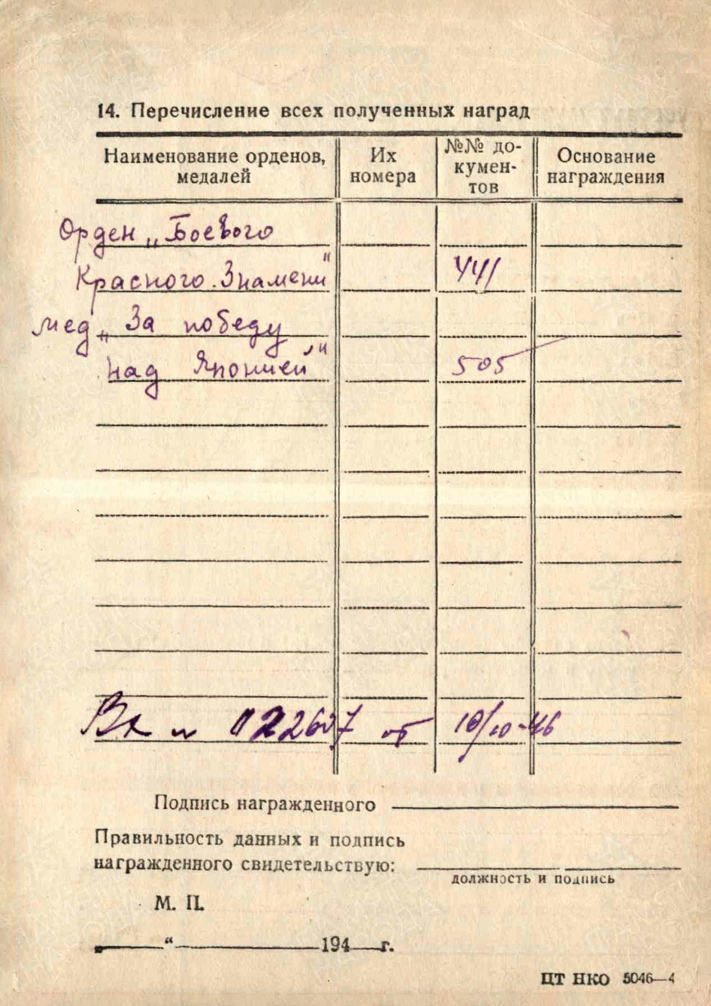 14. Перечисление всех полученных наград
Наименование орденов, медалей
Их номера
№№ до-
кумен-
тов
Основание награждения
Орден „Боевого
Красного Знамени" 441
мед „За победу
над Японией" 505
Вк № от 10/10-46
Подпись награжденного
Правильность данных и подпись
награжденного свидетельствую:
должность и подпись
М. П.
„ “ 194 г.
ЦТ НКО 5046—4